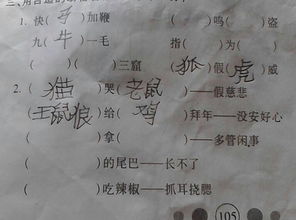 1. 快(马)加鞭 ( )鸣( )盗
九(牛)一毛 指( )为( )
( )( )三窟 (狐)假(虎)威
2. (猫)哭(老鼠)——假慈悲
(王鼠狼)给(鸡)拜年——没安好心
( )拿( )——多管闲事
( )的尾巴——长不了
( )吃辣椒——抓耳挠腮
105